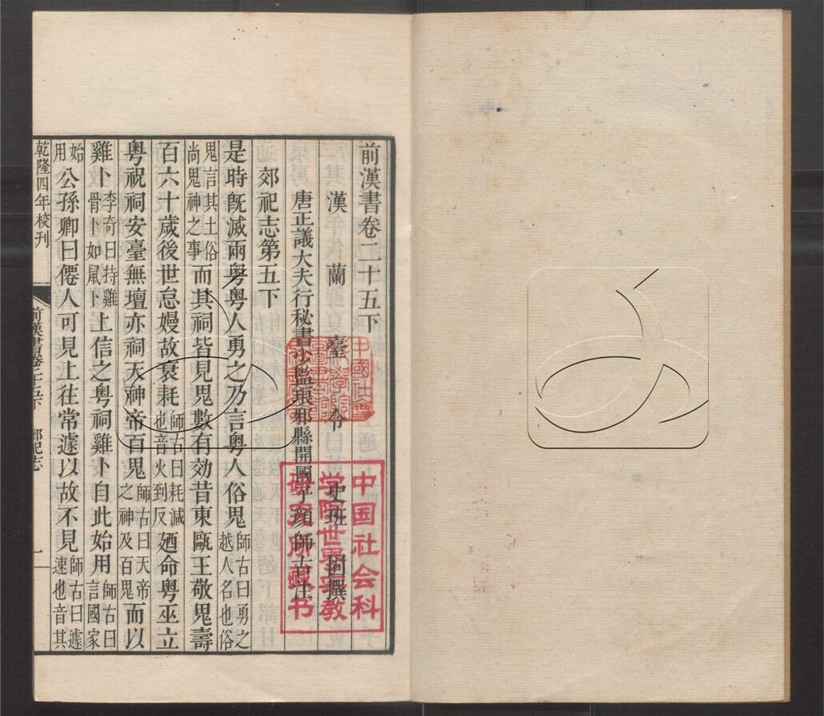 前漢書卷二十五下
漢蘭臺令史班固撰
唐正議大夫行秘書少監琅邪縣開國子顏師古注
郊祀志第五下
是時旣滅兩粵粵人勇之乃言粵人俗鬼師古曰勇之越人名也俗
鬼言其土俗尚鬼神之事而其祠皆見鬼數有効昔東甌王敬鬼壽
百六十歲後世怠嫚故衰耗師古曰耗減也音火到反廼命粵巫立
粵祝祠安臺無壇亦祠天神帝百鬼師古曰天帝之神及百鬼而以
雞卜李奇曰持雞骨卜如鼠卜上信之粵祠雞卜自此始用師古曰言國家
始用公孫卿曰僊人可見上往常遽以故不見師古曰遽速也音其
乾隆四年校刊
前漢書卷二十五下 郊祀志 一
中国社会科
学院世界宗教
研究所藏书